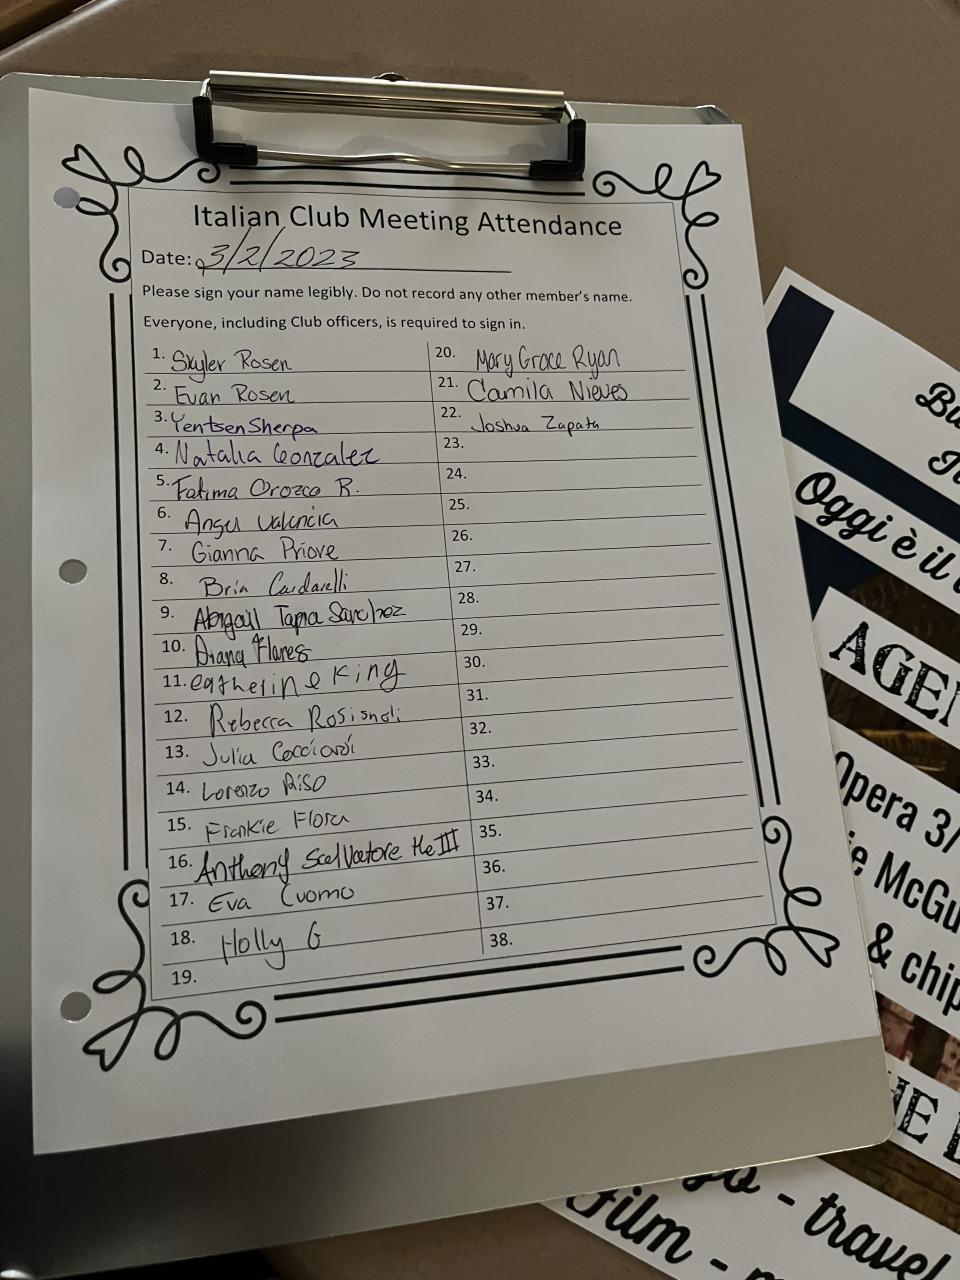 Italian Club Meeting Attendance
Date: 3/2/2023
Please sign your name legibly. Do not record any other member's name.
Everyone, including Club officers, is required to sign in.
1. Skyler Rosen
2. Evan Rosen
3. Yentsen Sherpa
4. Natalia Gonzalez
5. Fatima Orozco R.
6. Angel Valencia
7. Gianna Priove
8. Bria Cardarelli
9. Abigail Tapia Sanchez
10. Diana Flores
11. Catherine King
12. Rebecca Rosignoli
13. Julia Cocciardi
14. Lorenzo Riso
15. Frankie Flora
16. Anthony Scalvatore the III
17. Eva Cuomo
18. Holly G
19.
20. Mary Grace Ryan
21. Camila Nieves
22. Joshua Zapata
23.
24.
25.
26.
27.
28.
29.
30.
31.
32.
33.
34.
35.
36.
37.
38.
Oggi è il
AGEN
Opera 3/
ie McGu
& chip
- travel
Film -